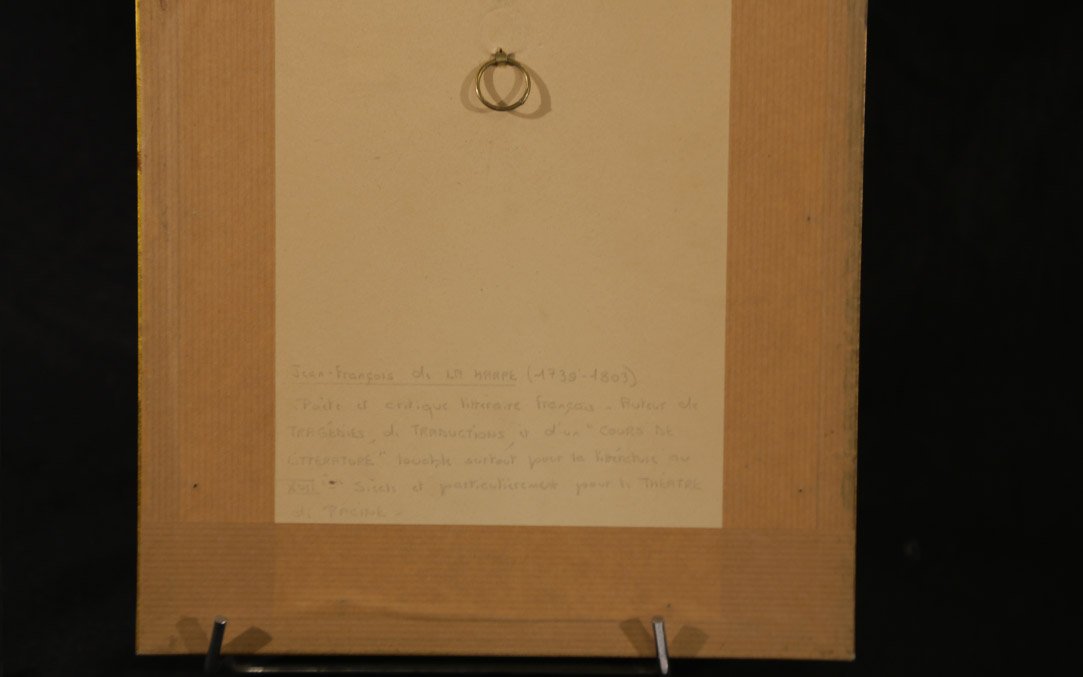 Jean-François de LA HARPE (1739-1803)
Poète et critique littéraire français - Auteur de
TRAGÉDIES, de TRADUCTIONS, et d'un "COURS DE
LITTÉRATURE" louable surtout pour la littérature au
XVII ème Siècle et particulièrement pour le THÉATRE
de RACINE -